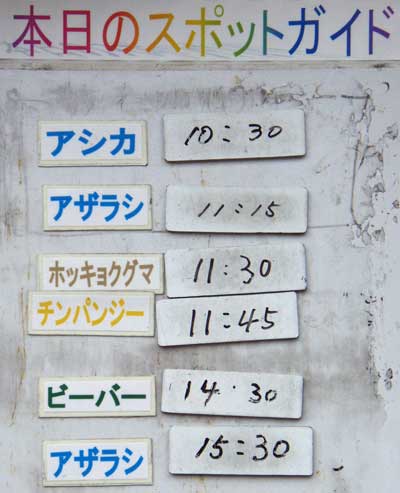 本日のスポットガイド
アシカ 10:30
アザラシ 11:15
ホッキョクグマ 11:30
チンパンジー 11:45
ビーバー 14・30
アザラシ 15:30